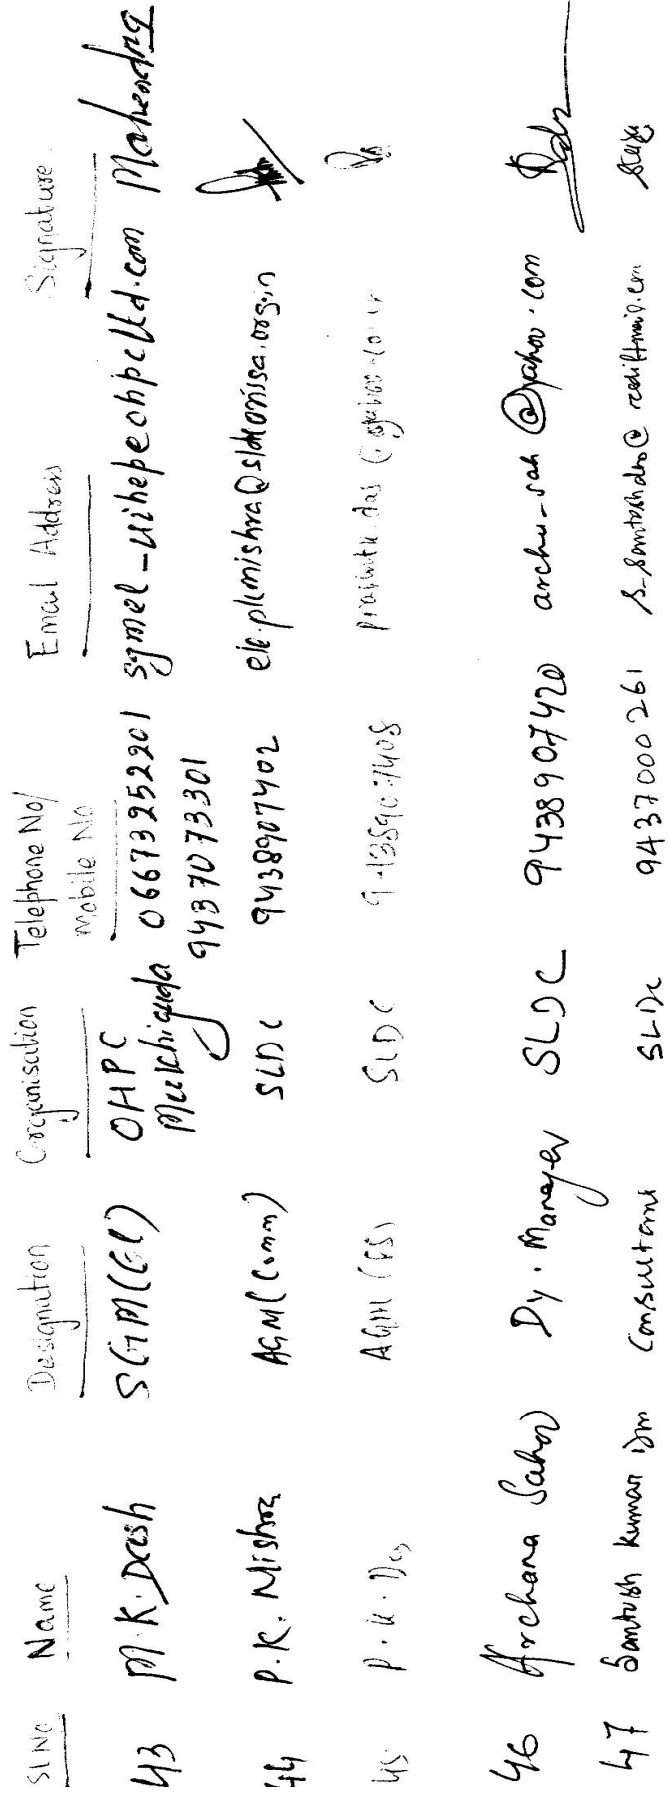 Sl No Name Designation Organisation Telephone No/ Mobile No Email Address Signature
43 M.K. Dash SGM(El) OHPC Mukhiguda 06673252201 9437073301 Mahendra
44 P.K. Mishra AGM(Comm) SLDC 9438907402 ele.pkmishra@sldcorissa.org.in
45 P.K. Das AGM SLDC 9438907408
46 Archana Sahoo Dy. Manager SLDC 9438907420 archu_sah@yahoo.com
47 Santosh Kumar Das Consultant SLDC 9437000261